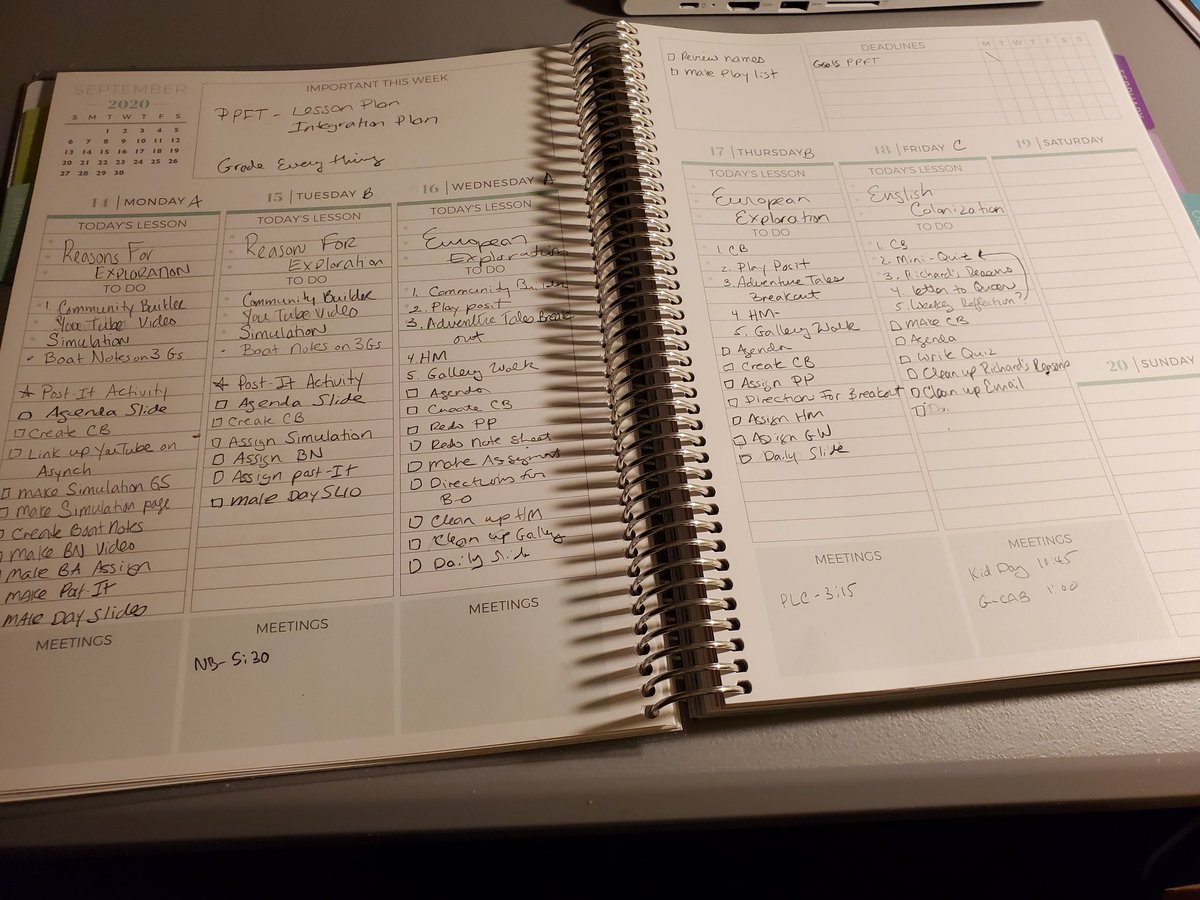 SEPTEMBER
2020
S M T W T F S
1 2 3 4 5
6 7 8 9 10 11 12
13 14 15 16 17 18 19
20 21 22 23 24 25 26
27 28 29 30
IMPORTANT THIS WEEK
PPFT - Lesson Plan
Integration Plan
Grade Everything
14 | MONDAY A
TODAY'S LESSON
Reasons For
EXPLORATION
TO DO
1. Community Builder
You Tube Video
Simulation
Boat Notes on 3 Gs
Post-It Activity
Agenda Slide
Create CB
Link up YouTube on
Asynch
Make Simulation GS
Make Simulation page
Create Boat Notes
Make BN Video
Make BA Assign
MAKE Post-It
MAKE Day Slides
MEETINGS
15 | TUESDAY B
TODAY'S LESSON
Reason For
Exploration
TO DO
Community Builder
You Tube Video
Simulation
Boat Notes on 3Gs
Post-It Activity
Agenda Slide
Create CB
Assign Simulation
Assign BN
Assign post-It
Make Day
MEETINGS
NB- 5:30
16 | WEDNESDAY A
TODAY'S LESSON
European
Exploration
TO DO
1. Community Builder
2. Play posit
3. Adventure Tales Break
out
4. HM
5. Gallery Walk
Agenda
Create CB
Redo PP
Redo Note Sheet
Make
Directions for
B-O
Clean up HM
Clean up
Daily
MEETINGS
Review names
Make Play list
DEADLINES
M T W T F S S
Goals PPFT
17 | THURSDAY B
TODAY'S LESSON
European
Exploration
TO DO
1. CB
2. Play Posit
3. Adventure Tales
Breakout
4. HM-
5. Gallery Walk
Agenda
Create CB
Assign PP
Direction For Breakout
Assign HM
Assign GW
Daily Slide
MEETINGS
PLC - 3:15
18 | FRIDAY C
TODAY'S LESSON
English
Colonization
TO DO
1. CB
2. Mini-Quiz
3. Richard's Reasons
4 letter to Queen
5. Weekly Reflection?
Make CB
Agenda
Write Quiz
Clean up Richard's Reasons
Clean up Email
MEETINGS
Kid Day 10:45
G-CAB 1:00
19 | SATURDAY
20 | SUNDAY